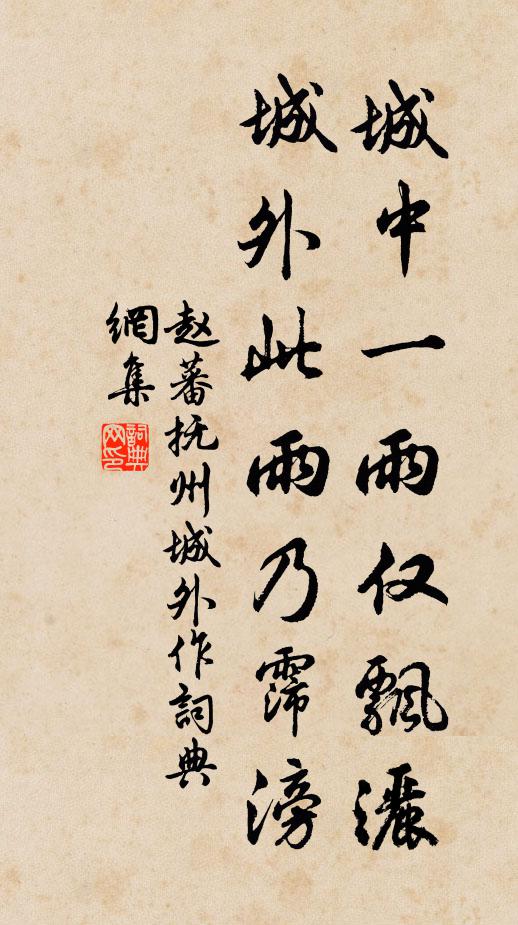 城中一雨仅飘灑
城外此雨乃霶滂
赵蕃抚州城外作詞典
網集
詞典
网印